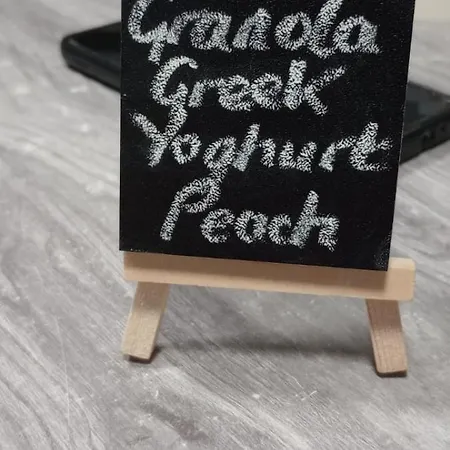 Granola
Greek
Yoghurt
Peach